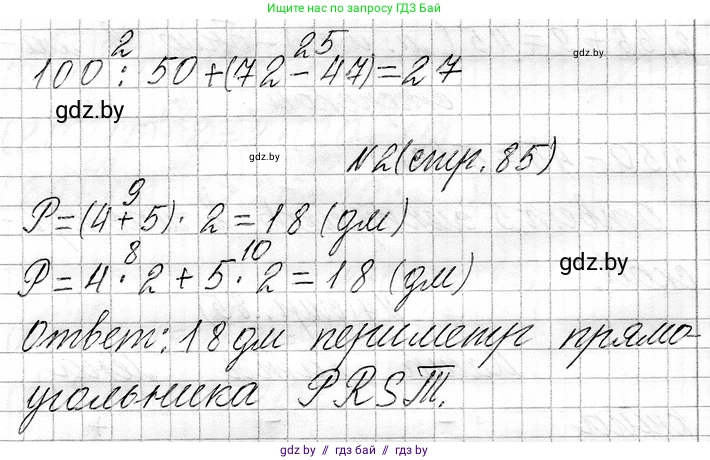 Ищите нас в поиске по запросу ГДЗ Бай
2 25
100 : 50 + (72 - 47) = 27
gdz.by
gdz.by
gdz.by
№2 (стр. 85)
9
P = (4 + 5) · 2 = 18 (дм)
8 10
P = 4 · 2 + 5 · 2 = 18 (дм)
gdz.by
Ответ: 18 дм периметр прямо-
угольника PRST.
gdz.by // гдз бай // гдз by